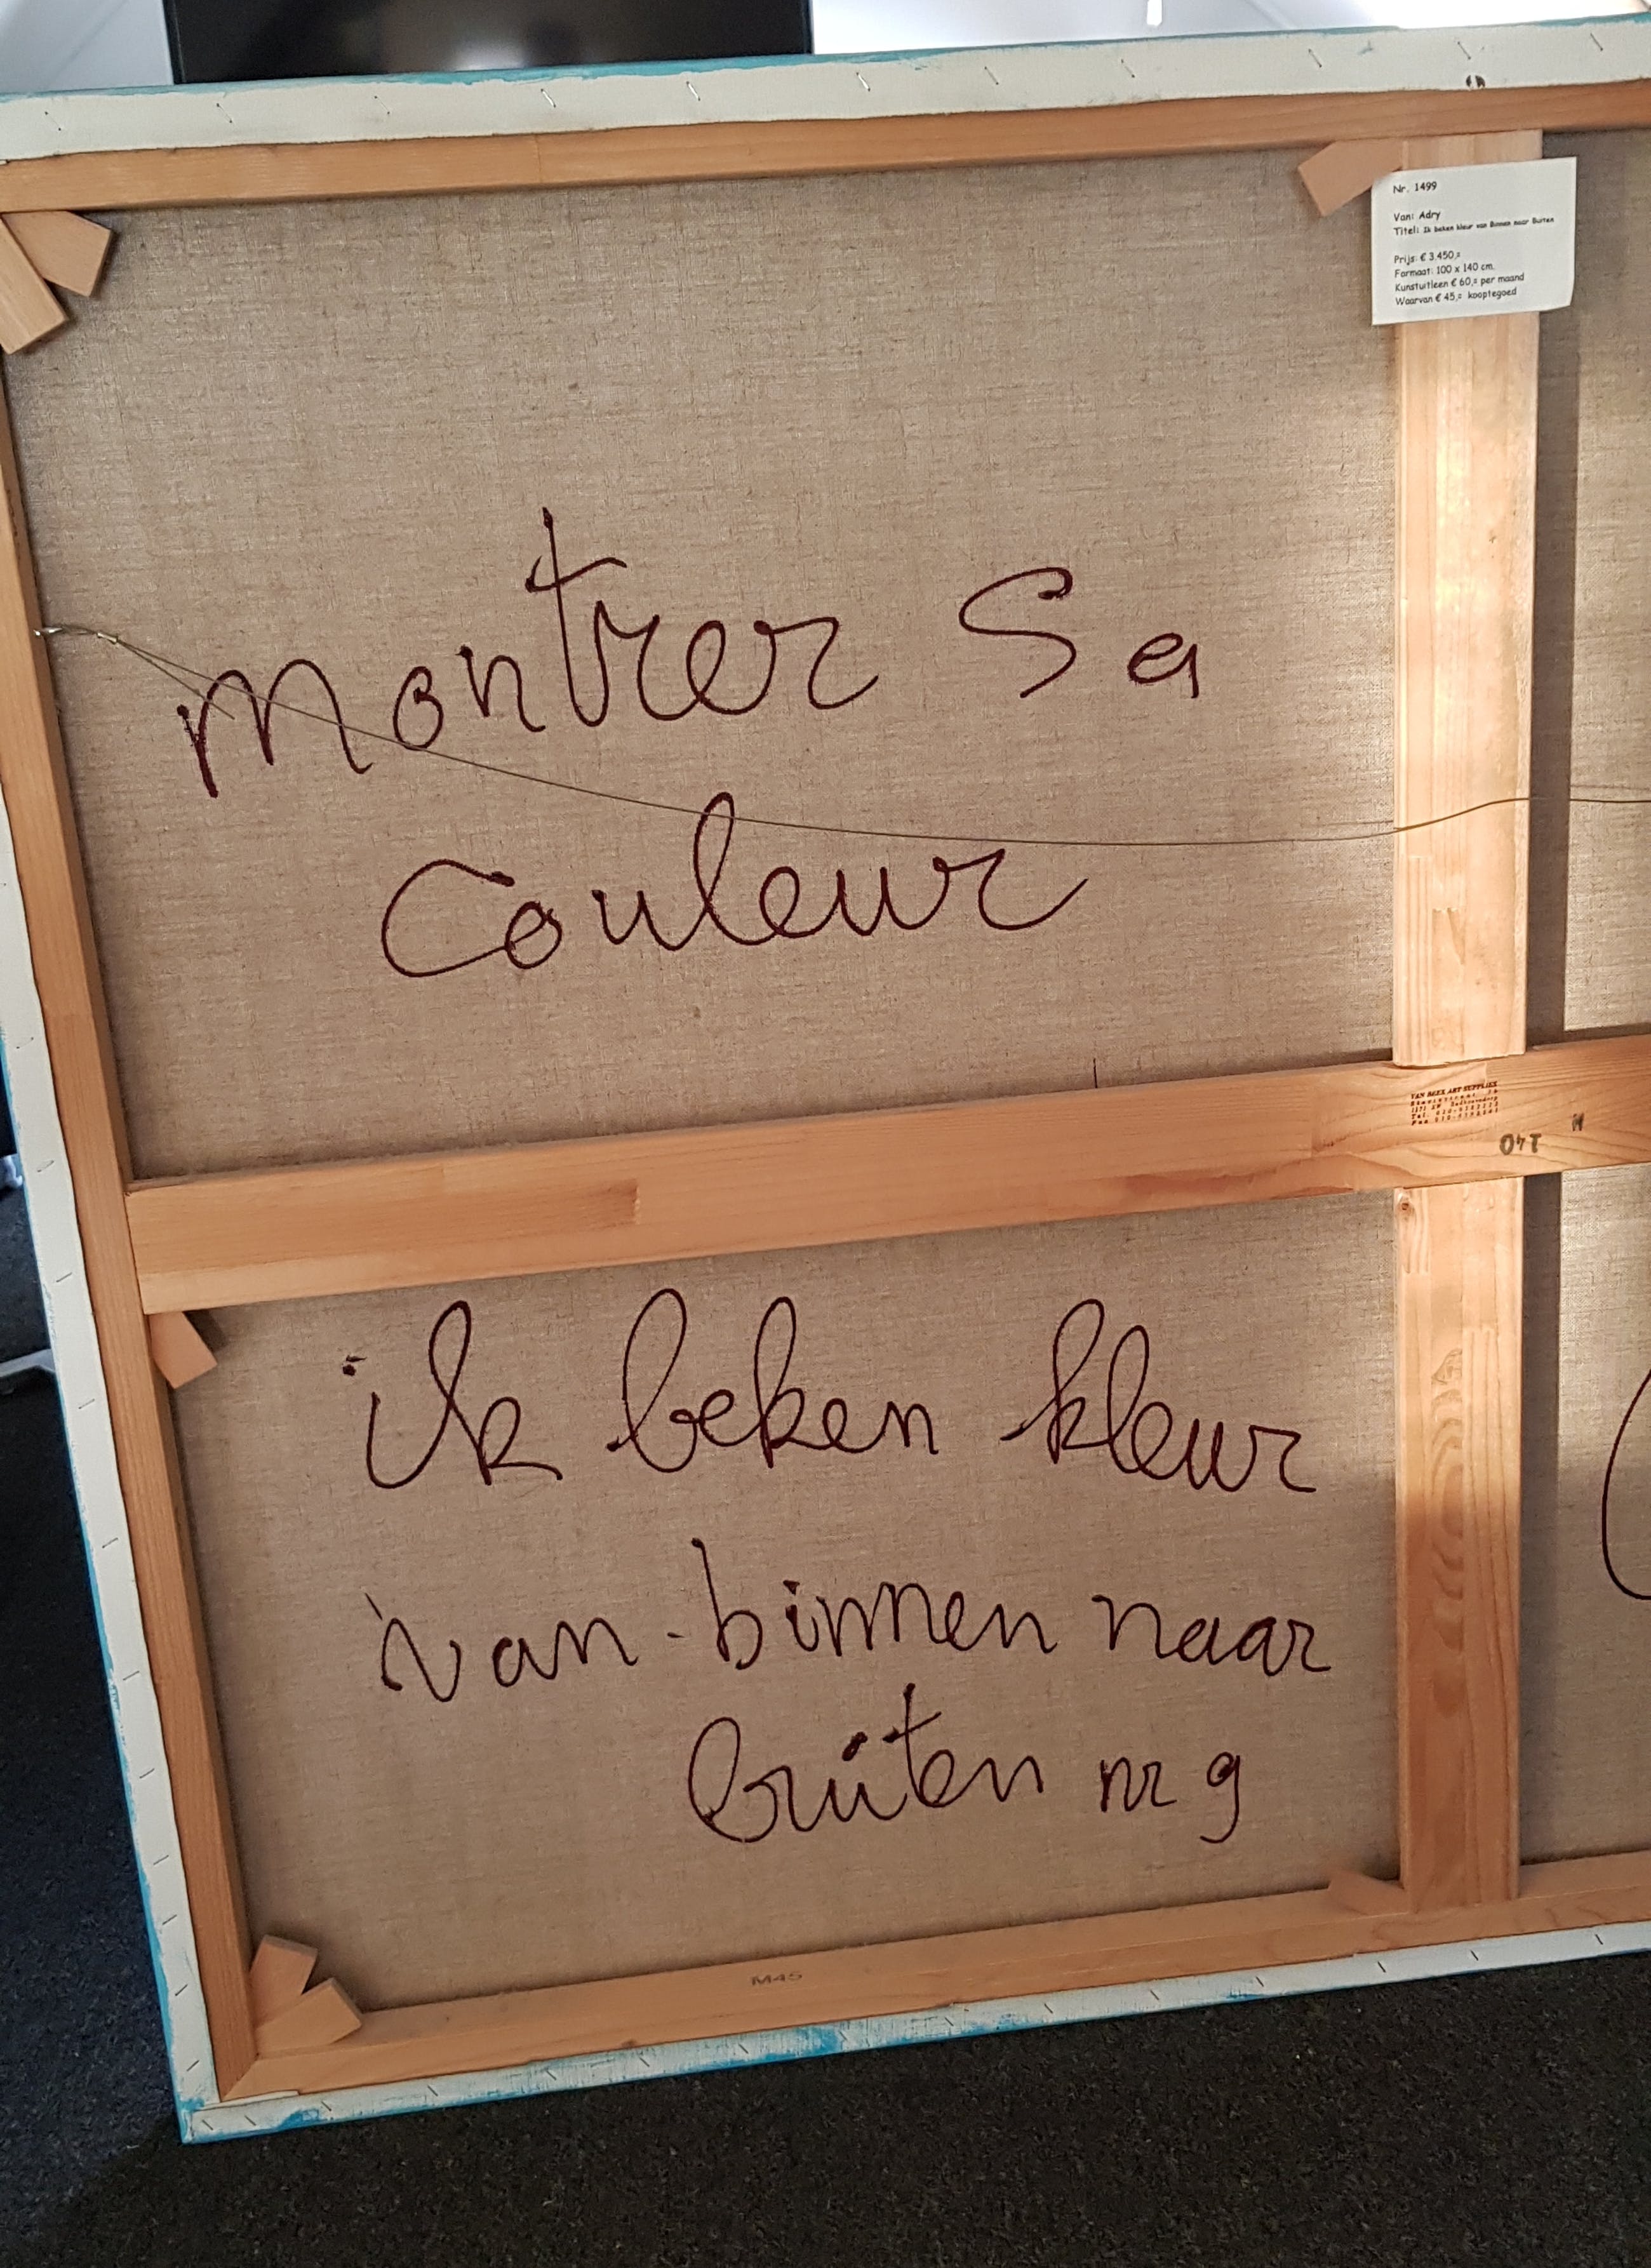 Nr. 1499
Van: Adry
Titel: Ik beken kleur van Binnen naar Buiten
Prijs: € 3.450,=
Formaat: 100 x 140 cm.
Kunstuitleen € 60,= per maand
Waarvan € 45,= kooptegoed
montrer Sa
Couleur
VAN BEEK ART SUPPLIES
140
M
ik beken kleur
van-binnen naar
buiten nr 9
M45